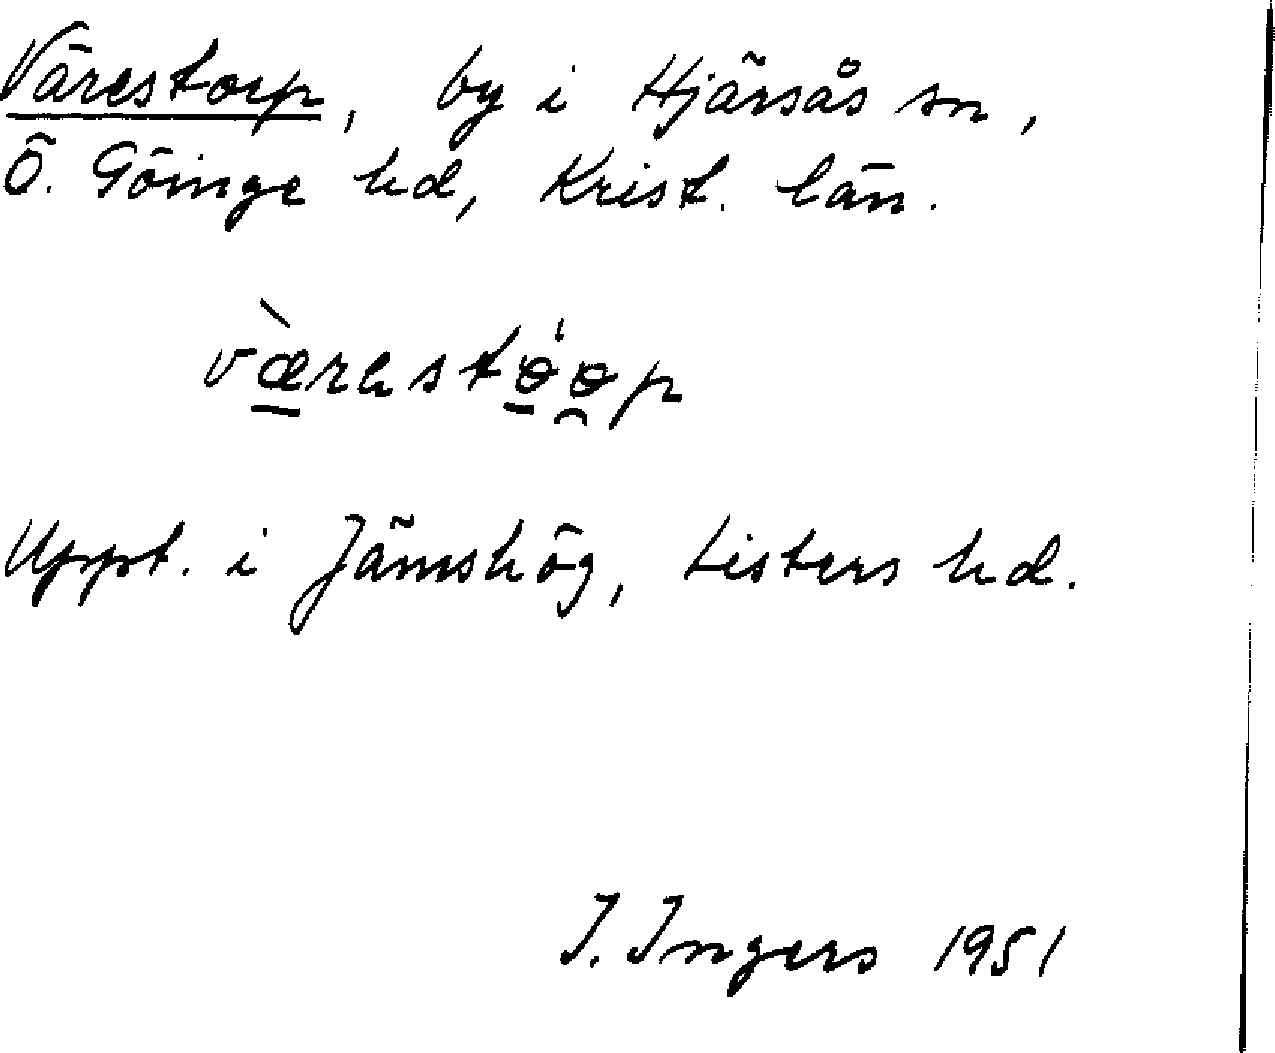 Värestorp, by i Hjärsås sn,
Ö. Göinge hd, Krist. län.
væ̀rastɵ́ɵp
Uppt. i Jämshög, Listers hd.
I. Ingers 1951